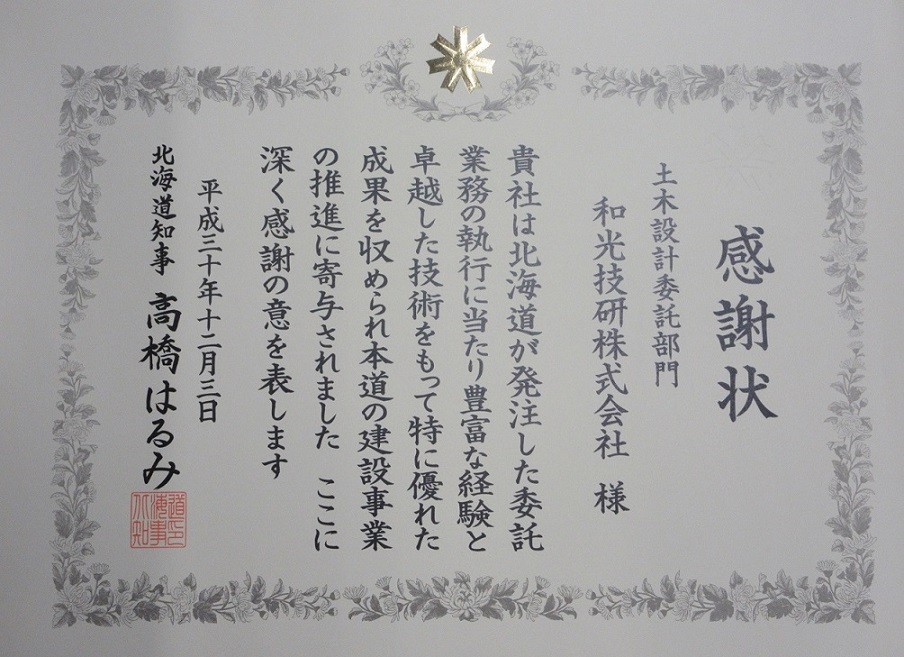 感謝状
土木設計委託部門
和光技研株式会社 様
貴社は北海道が発注した委託
業務の執行に当たり豊富な経験と
卓越した技術をもって特に優れた
成果を収められ本道の建設事業
の推進に寄与されました ここに
深く感謝の意を表します
平成三十年十二月三日
北海道知事 高橋はるみ